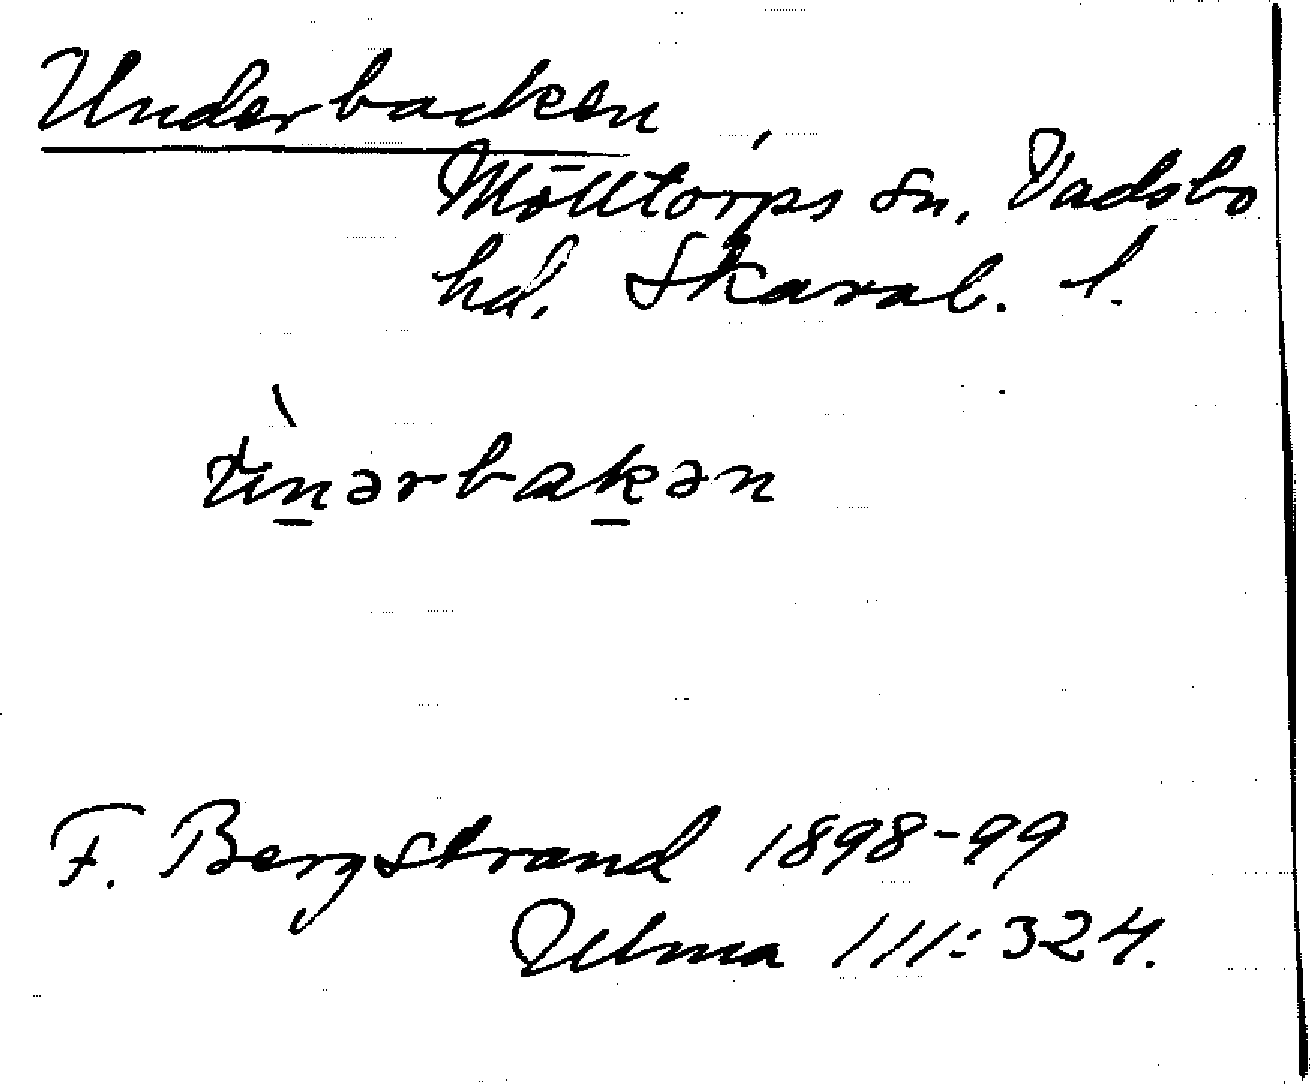 Underbacken,
Mölltorps sn, Vadsbo
hd. Skarab. l.
ùn̠ərbak̠ən
F. Bergstrand 1898-99
Ulma 111:324.